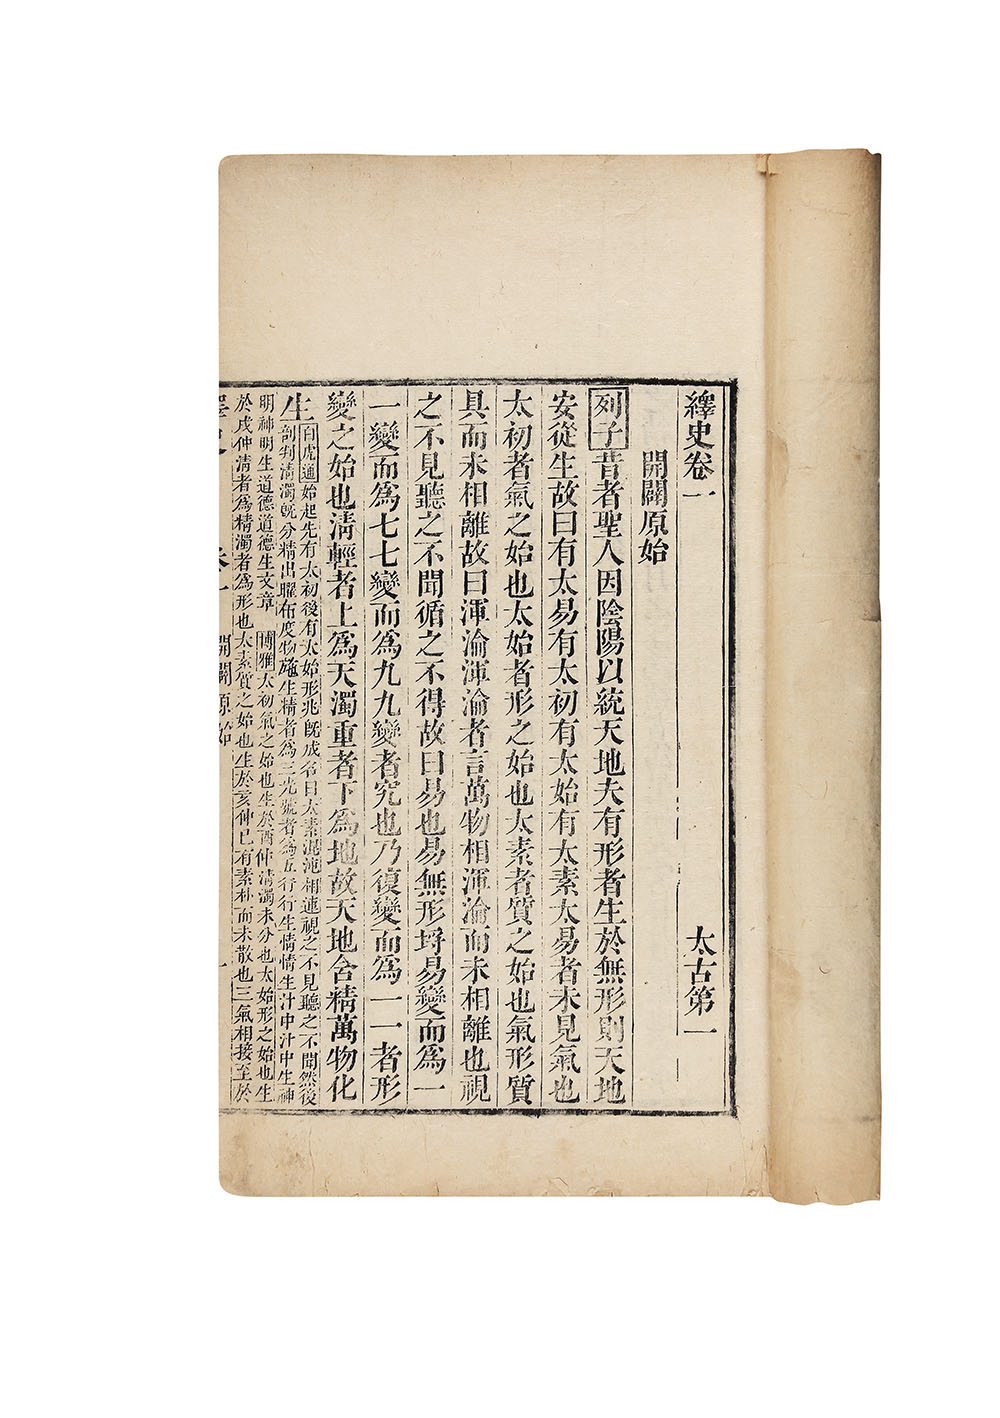 繹史卷一 太古第一
開闢原始
列子昔者聖人因陰陽以統天地夫有形者生於無形則天地
安從生故曰有太易有太初有太始有太素太易者未見氣也
太初者氣之始也太始者形之始也太素者質之始也氣形質
具而未相離故曰渾淪渾淪者言萬物相渾淪而未相離也視
之不見聽之不聞循之不得故曰易也易無形埒易變而爲一
一變而爲七七變而爲九九變者究也乃復變而爲一一者形
變之始也清輕者上爲天濁重者下爲地故天地含精萬物化
生
白虎通始起先有太初後有太始形兆旣成名曰太素混沌相連視之不見聽之不聞然後
剖判清濁旣分精出曜布度物施生精者爲三光號者爲五行行生情情生汁中汁中生神
明神明生道德道德生文章 博雅太初氣之始也生於酉仲清濁未分也太始形之始也生
於戌仲清者爲精濁者爲形也太素質之始也生於亥仲已有素朴而未散也三氣相接至於
繹史 卷一 開闢原始 一